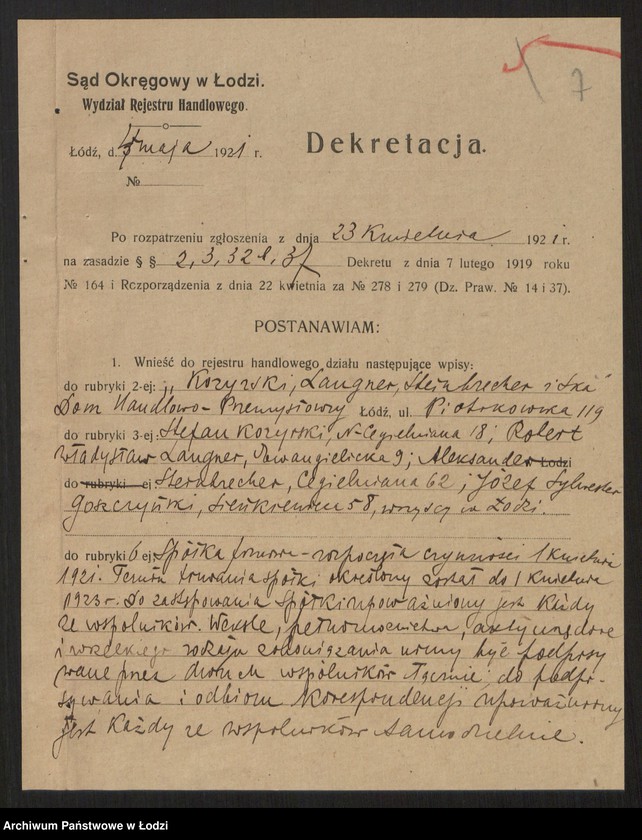 7
Sąd Okręgowy w Łodzi.
Wydział Rejestru Handlowego.
Łódź, d. 4 maja 1921 r.
Dekretacja.
№
Po rozpatrzeniu zgłoszenia z dnia 23 Kwietnia 1921 r.
na zasadzie § § 2, 3, 32 Dekretu z dnia 7 lutego 1919 roku
№ 164 i Rozporządzenia z dnia 22 kwietnia za № 278 i 279 (Dz. Praw. № 14 i 37).
POSTANAWIAM:
1. Wnieść do rejestru handlowego działu następujące wpisy:
do rubryki 2-ej: „Kozyrski, Langner, Steinbrecher i Ska"
Dom Handlowo-Przemysłowy Łódź, ul. Piotrkowska 119
do rubryki 3-ej: Stefan Kozyrski, N-Cegielniana 18; Robert
Władysław Langner, Ewangielicka 9; Aleksander Łodzi
do rubryki ej Steinbrecher, Cegielniana 62 i Józef Sylwester
Goszczyński, Sienkiewicza 58, wszyscy w Łodzi.
do rubryki 6 ej Spółka firmowa - rozpoczęła czynności 1 kwietnia
1921. Termin trwania spółki określony został do 1 kwietnia
1923 r. Do zastępowania spółki upoważniony jest każdy
ze wspólników. Weksle, pełnomocnictwa, akty urzędowe
i wszelkiego rodzaju zobowiązania winny być podpisy
wane przez dwóch wspólników łącznie; do podpi-
sywania i odbioru korespondencji upoważniony
jest każdy ze wspólników samodzielnie.
Archiwum Państwowe w Łodzi